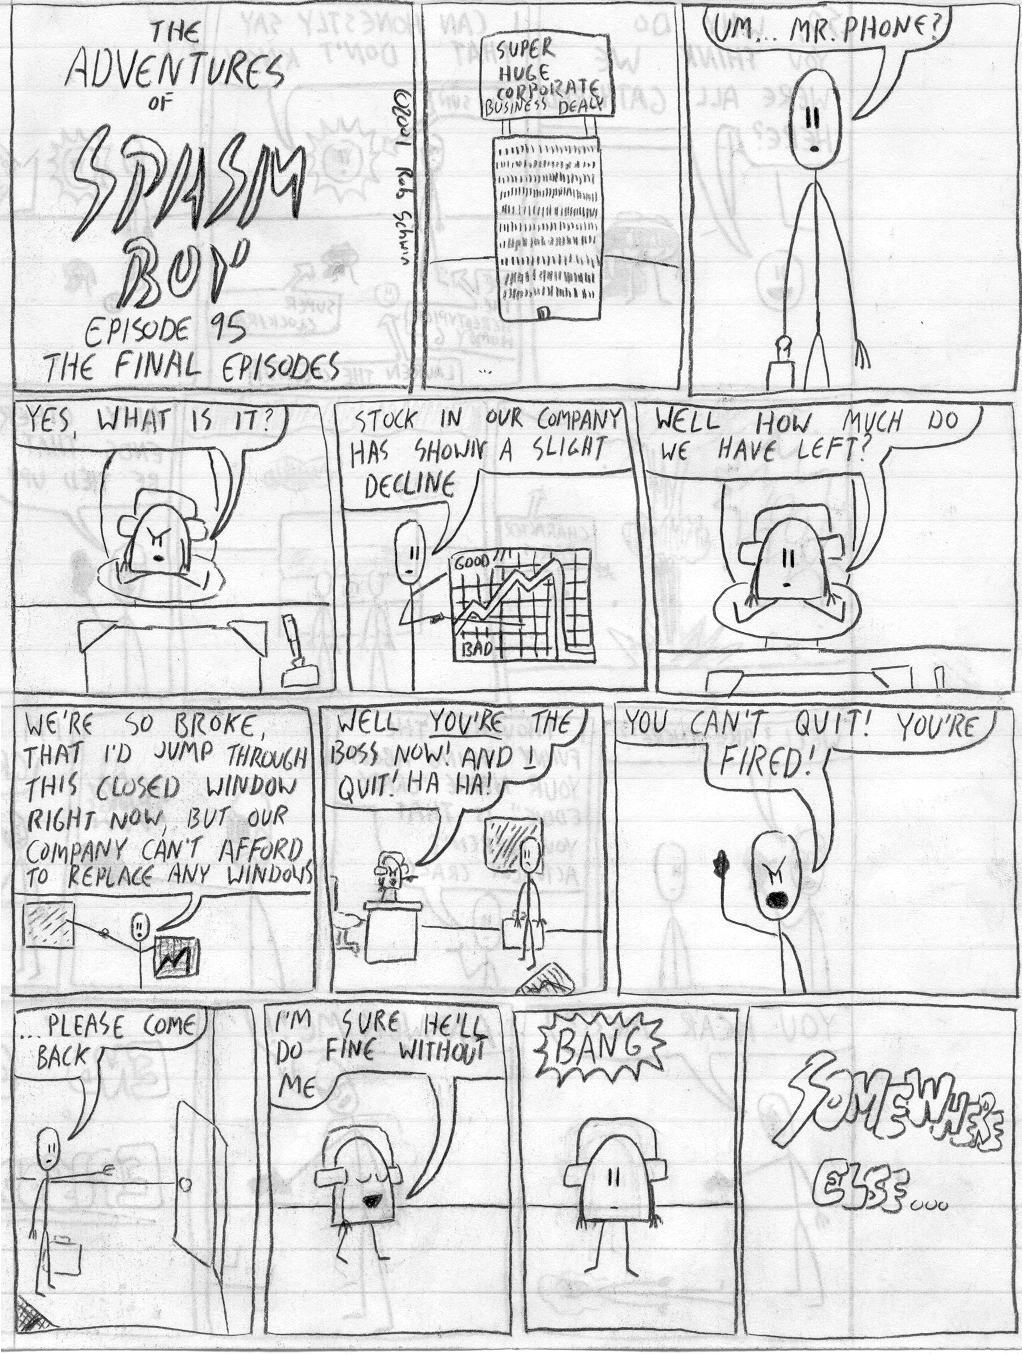 THE
ADVENTURES
OF
SPASM
BOY
EPISODE 95
THE FINAL EPISODES
©2001 Rob Schwin
SUPER
HUGE
CORPORATE
BUSINESS DEALY
...
UM... MR. PHONE?
YES, WHAT IS IT?
STOCK IN OUR COMPANY
HAS SHOWN A SLIGHT
DECLINE
GOOD
BAD
WELL HOW MUCH DO
WE HAVE LEFT?
WE'RE SO BROKE,
THAT I'D JUMP THROUGH
THIS CLOSED WINDOW
RIGHT NOW, BUT OUR
COMPANY CAN'T AFFORD
TO REPLACE ANY WINDOWS
WELL YOU'RE THE
BOSS NOW! AND I
QUIT! HA HA!
YOU CAN'T QUIT! YOU'RE
FIRED!
...PLEASE COME
BACK
I'M SURE HE'LL
DO FINE WITHOUT
ME
BANG
SOMEWHERE
ELSE...